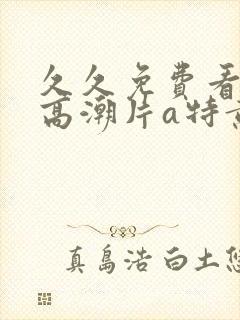 久久免费看
高潮片a特
真島浩白土悠